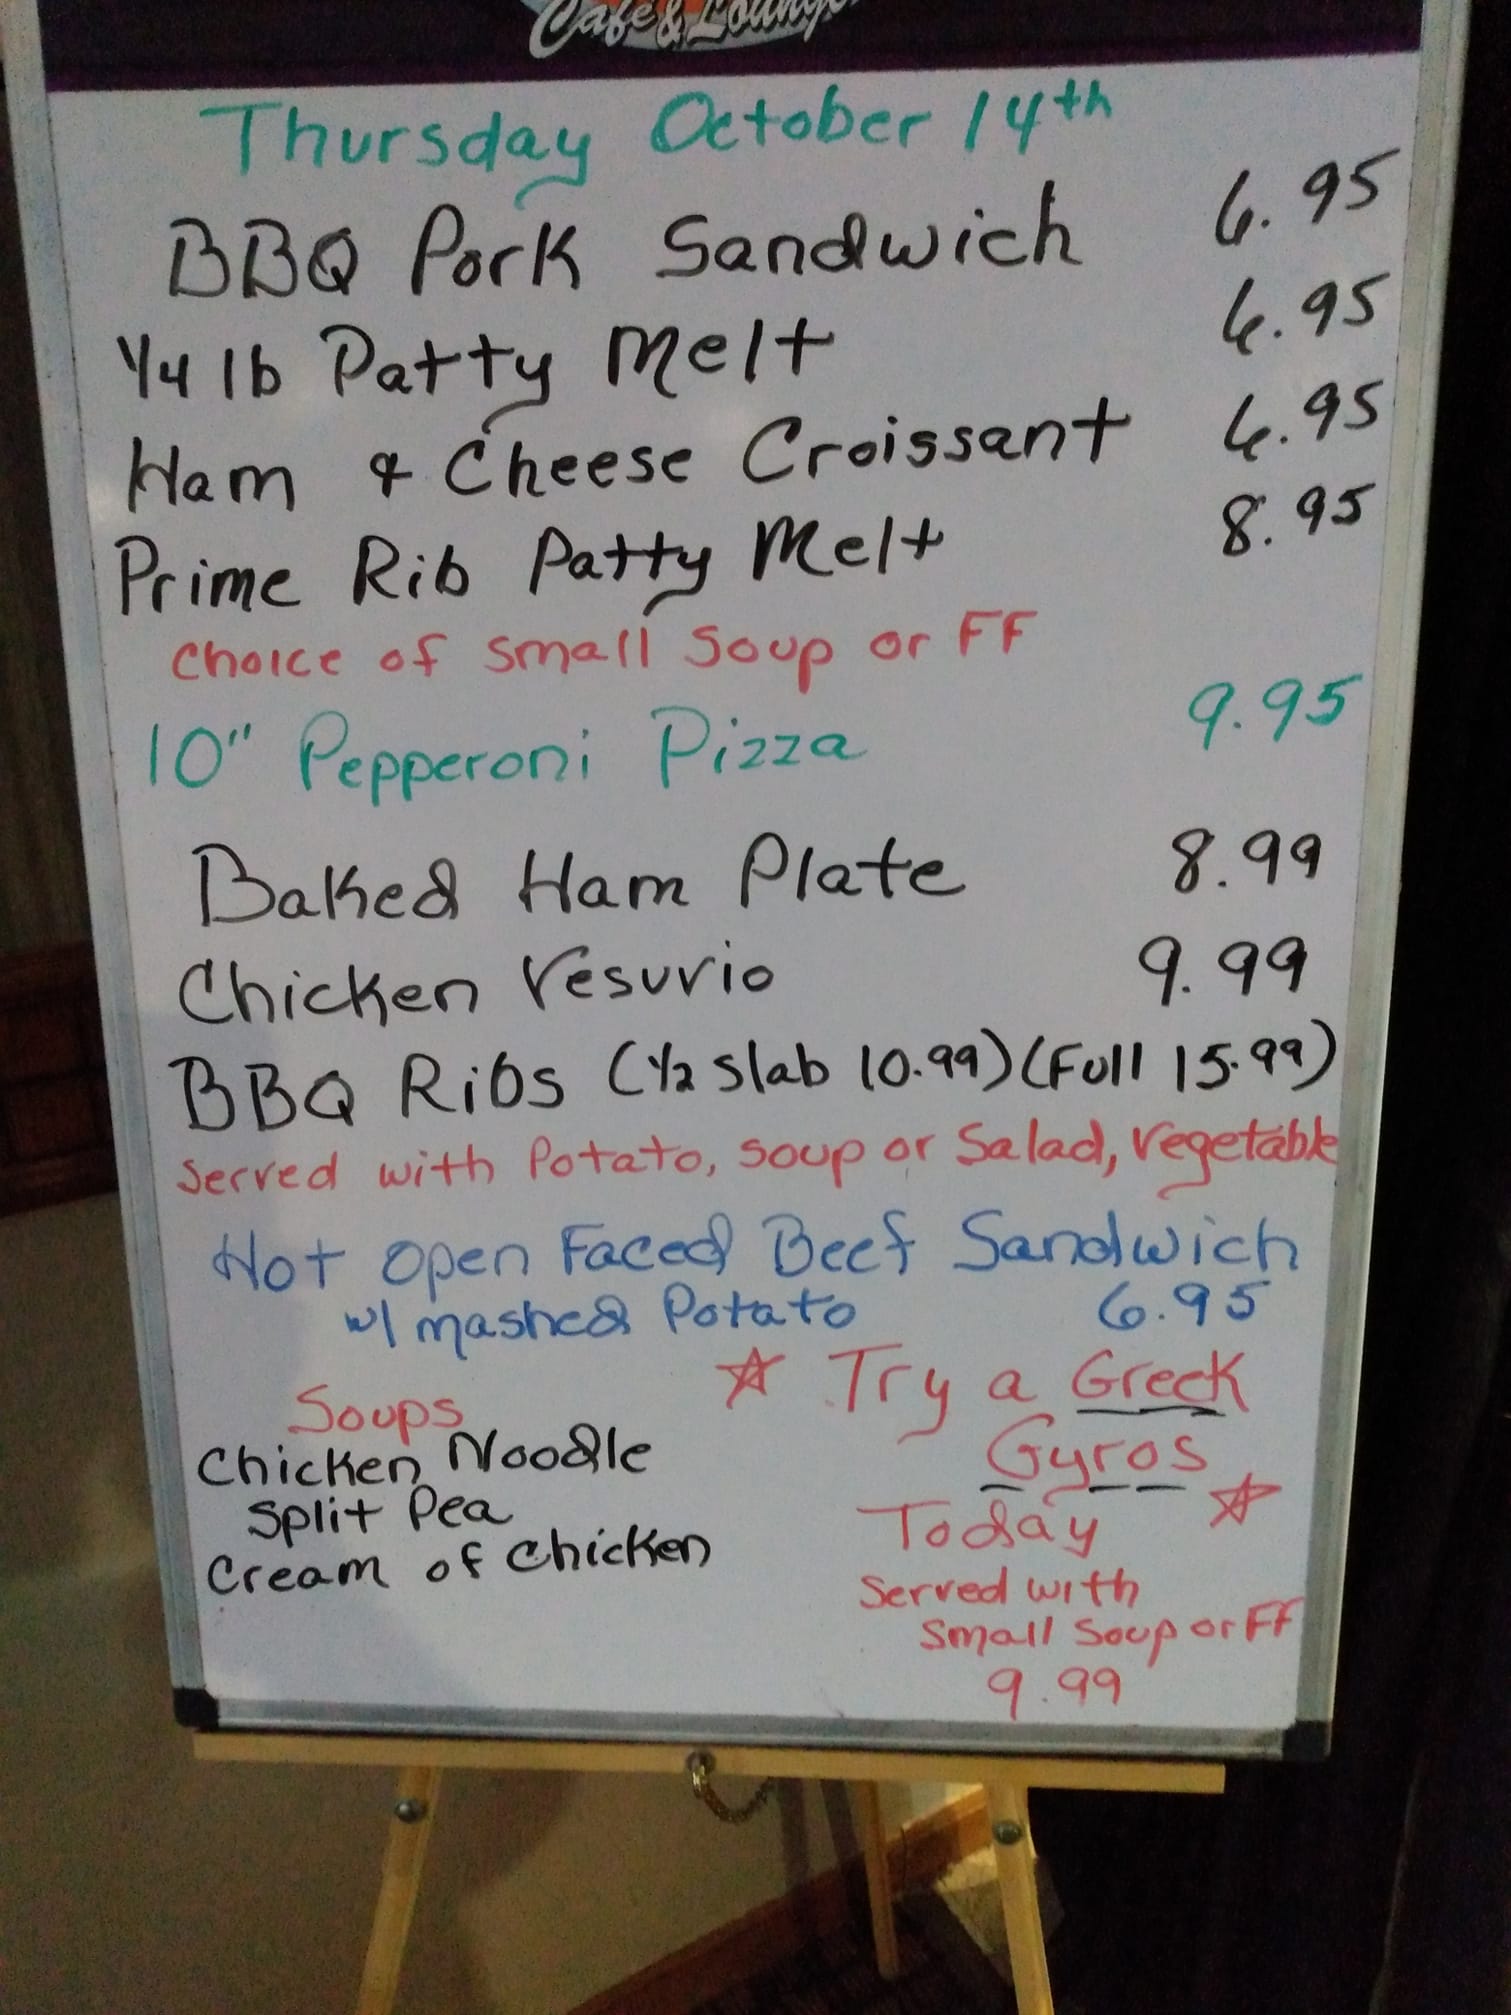 Café & Lounge
Thursday October 14th
BBQ Pork Sandwich 6.95
1/4 lb Patty Melt 6.95
Ham & Cheese Croissant 6.95
Prime Rib Patty Melt 8.95
choice of small Soup or FF
10" Pepperoni Pizza 9.95
Baked Ham Plate 8.99
Chicken Vesuvio 9.99
BBQ Ribs (1/2 slab 10.99) (Full 15.99)
served with Potato, soup or Salad, vegetable
Hot open Faced Beef Sandwich
w/ mashed Potato 6.95
Soups
Chicken Noodle
Split Pea
Cream of chicken
☆ Try a Greek
Gyros
Today ☆
Served with
small Soup or FF
9.99